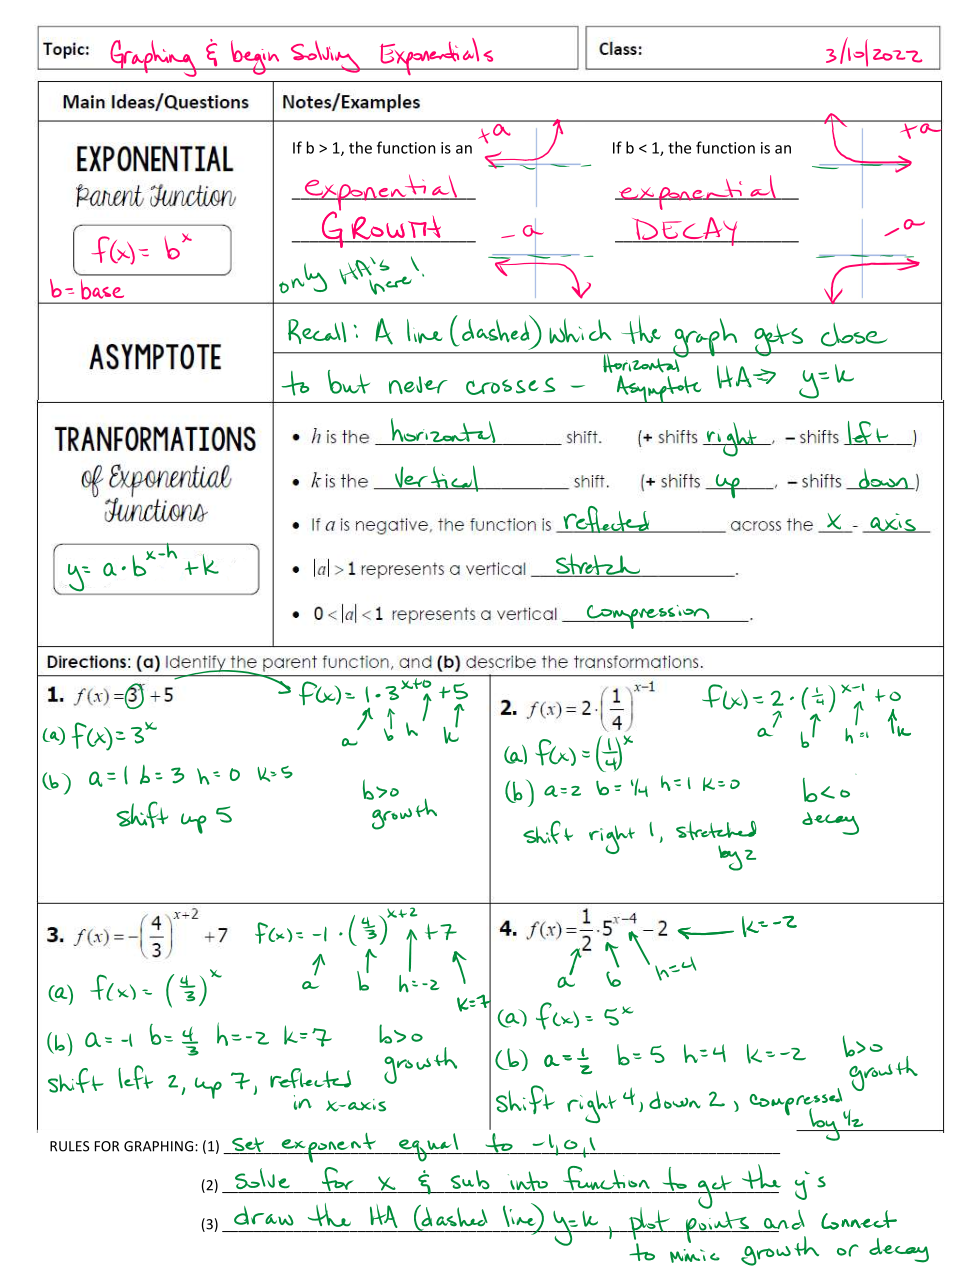 Topic: Graphing & begin Solving Exponentials
Class: 3/10/2022
Main Ideas/Questions
Notes/Examples
EXPONENTIAL
Parent Function
f(x) = b^x
b = base
If b > 1, the function is an
exponential
GROWTH
only HA's
here!
+a
-a
If b < 1, the function is an
exponential
DECAY
+a
-a
ASYMPTOTE
Recall: A line (dashed) which the graph gets close
to but never crosses - Horizontal Asymptote HA ⇒ y=k
TRANFORMATIONS
of Exponential
Functions
y = a·b^(x-h) + k
• h is the horizontal shift. (+ shifts right, – shifts left)
• k is the vertical shift. (+ shifts up, – shifts down)
• If a is negative, the function is reflected across the x - axis
• |a| > 1 represents a vertical stretch.
• 0 < |a| < 1 represents a vertical compression.
Directions: (a) Identify the parent function, and (b) describe the transformations.
1. f(x) = 3^x + 5
f(x) = 1·3^(x+0) + 5
a b h k
(a) f(x) = 3^x
(b) a = 1 b = 3 h = 0 k = 5
shift up 5
b>0
growth
2. f(x) = 2·(1/4)^(x-1)
f(x) = 2·(1/4)^(x-1) + 0
a b h=1 k
(a) f(x) = (1/4)^x
(b) a=2 b=1/4 h=1 k=0
b<0
decay
shift right 1, stretched
by 2
3. f(x) = -(4/3)^(x+2) + 7
f(x) = -1·(4/3)^(x+2) + 7
a b h=-2
k=7
(a) f(x) = (4/3)^x
(b) a = -1 b = 4/3 h = -2 k = 7
b>0
growth
shift left 2, up 7, reflected
in x-axis
4. f(x) = 1/2·5^(x-4) - 2
k=-2
a b h=4
(a) f(x) = 5^x
(b) a = 1/2 b = 5 h = 4 k = -2
b>0
growth
shift right 4, down 2, compressed
by 1/2
RULES FOR GRAPHING: (1) set exponent equal to -1,0,1
(2) solve for x & sub into function to get the y's
(3) draw the HA (dashed line) y=k, plot points and connect
to mimic growth or decay